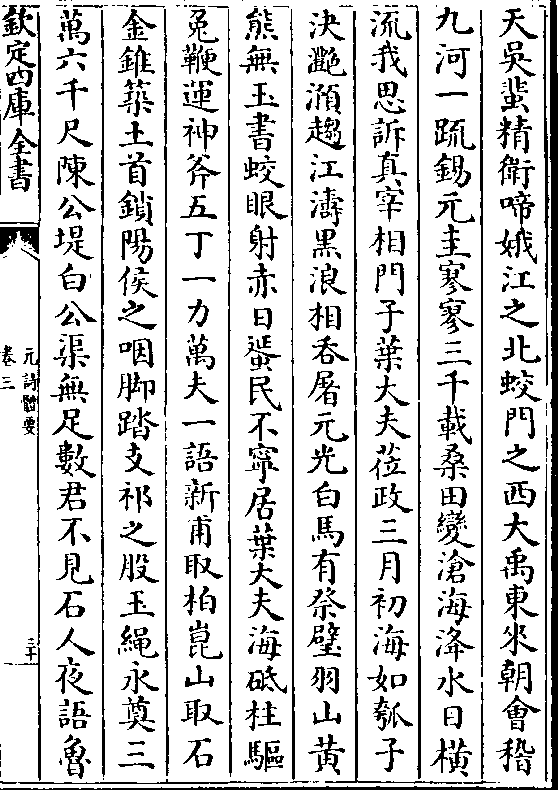 天吳蜚精衛啼娥江之北蛟門之西大禹東來朝會稽
九河一䟽錫元圭寥寥三千載桑田變滄海洚水日橫
流我思訴真宰相門子葉大夫莅政三月初海如瓠子
決灔澦趨江濤黑浪相吞屠元光白馬有祭璧羽山黄
熊無玉書蛟眼射赤日蜑民不寧居葉大夫海砥柱驅
兔鞭運神斧五丁一力萬夫一語新甫取柏崑山取石
金錐築土首鎖陽侯之咽脚踏支祁之股玉繩永奠三
萬六千尺陳公堤白公渠無足數君不見石人夜語魯
欽定四庫全書
元詩體要
卷三